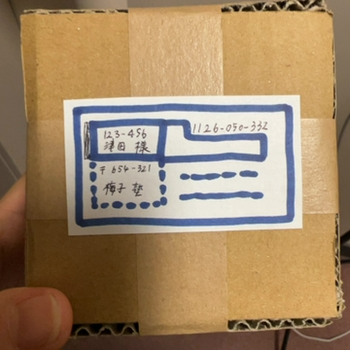 123-456
津田 様
1126-090-332
〒654-321
梅子 塾